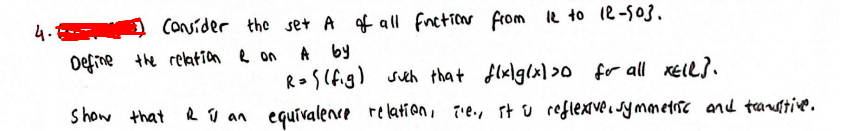 4. Consider the set A of all fnctions from R to R-{0}.
Define the relation R on A by
R = {(f,g) such that f(x)g(x)>0 for all x∈R}.
Show that R is an equivalence relation, i.e., it is reflexive, symmetric and transitive.